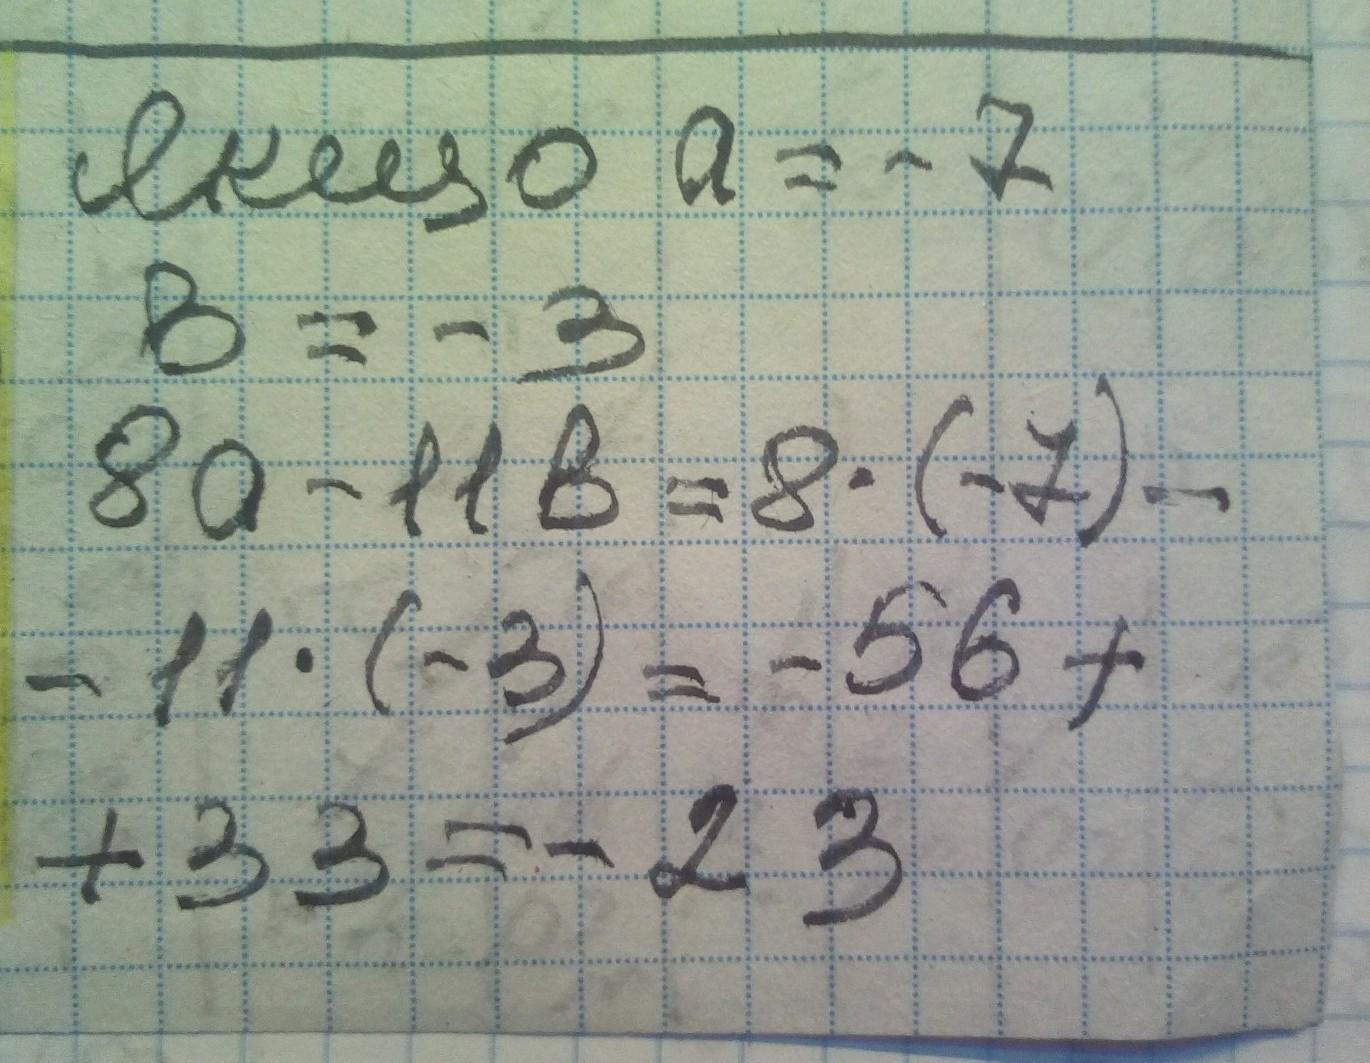 Якщо a = - 7
в = - 3
8a - 11в = 8 · (-7) -
- 11 · (-3) = - 56 +
+ 33 = - 23